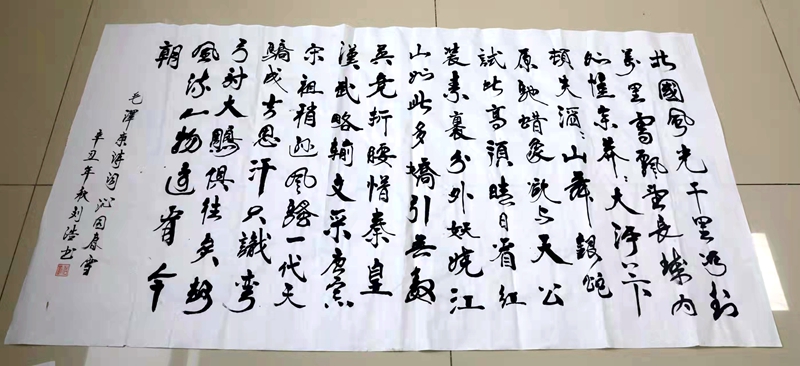 北國風光千里冰封
萬里雪飄望長城內
外惟余莽〻大河上下
頓失滔〻山舞銀蛇
原馳蜡象欲与天公
試比高須晴日看红
装素裹分外妖嬈江
山如此多嬌引无数
英竞折腰惜秦皇
漢武略輸文采唐宗
宋祖稍逊風騷一代天
驕成吉思汗只識弯
弓射大鵰俱往矣数
風流人物還看今
朝
毛澤东诗词沁园春雪
辛丑年秋刘浩书